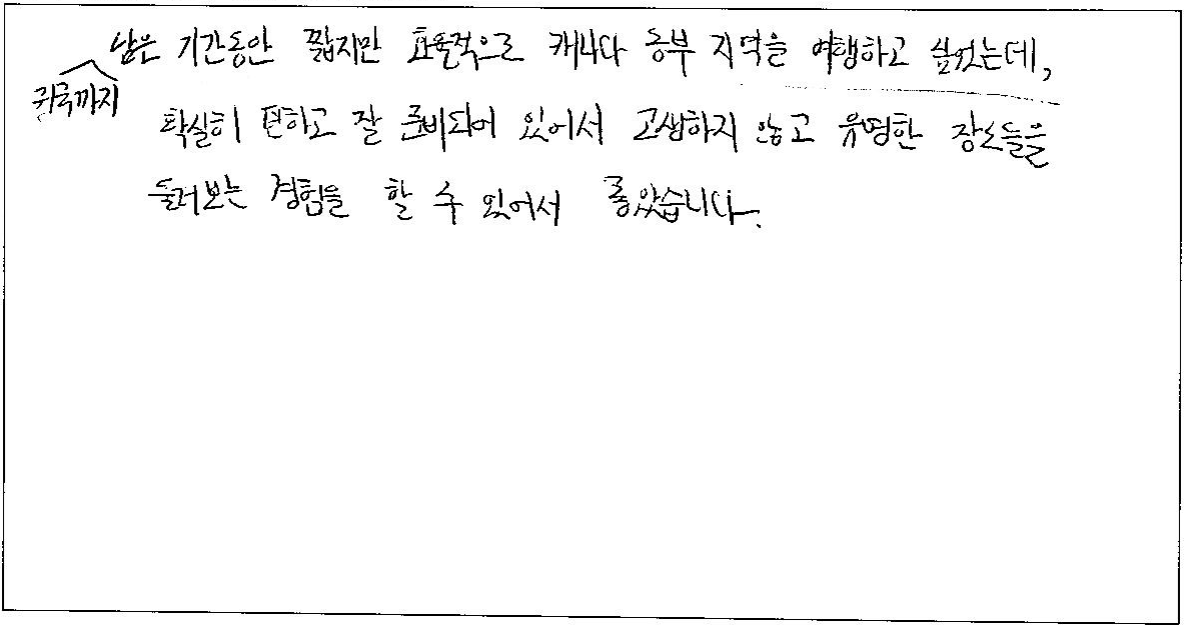 귀국까지
남은 기간동안 짧지만 효율적으로 캐나다 동부 지역을 여행하고 싶었는데,
확실히 편하고 잘 준비되어 있어서 고생하지 않고 유명한 장소들을
둘러보는 경험을 할 수 있어서 좋았습니다.